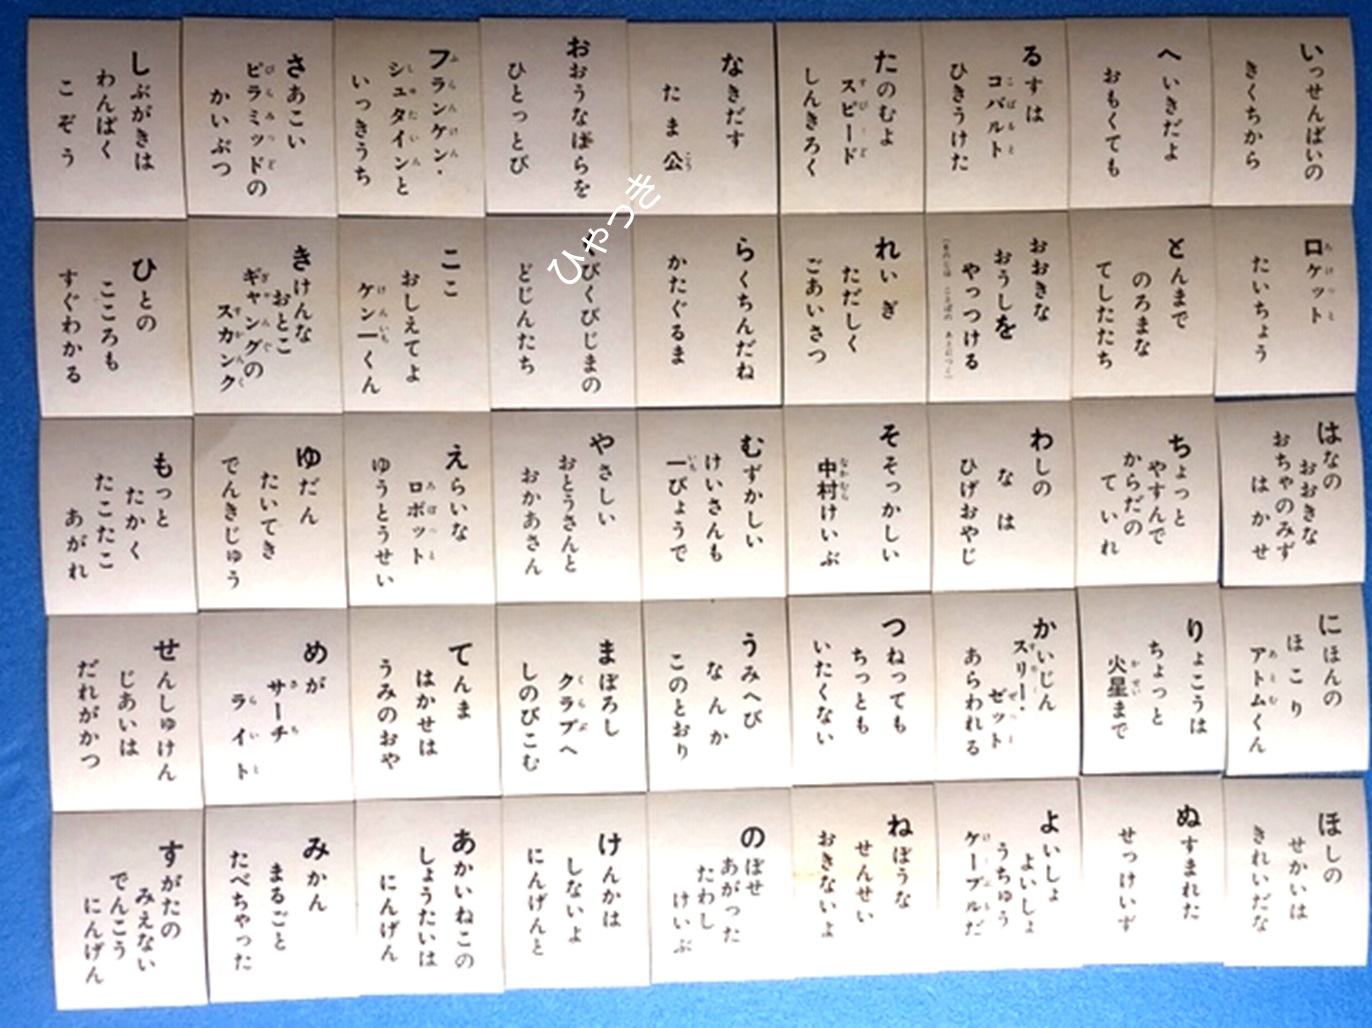 いっせんばいの
きくちから
へいきだよ
おもくても
るすは
コバルト
ひきうけた
たのむよ
スピード
しんきろく
なきだす
たま公
おおうなばらを
ひとっとび
フランケン・
シュタインと
いっきうち
さあこい
ピラミッドの
かいぶつ
しぶがきは
わんぱく
こぞう
ロケット
たいちょう
とんまで
のろまな
てしたたち
おおきな
おうしを
やっつける
れいぎ
ただしく
ごあいさつ
らくちんだね
かたぐるま
くびくびじまの
どじんたち
ここ
おしえてよ
ケン一くん
きけんな
おとこ
ギャングの
スカンク
ひとの
こころも
すぐわかる
はなの
おおきな
おちゃのみず
はかせ
ちょっと
やすんで
からだの
ていれ
わしの
なは
ひげおやじ
そそっかしい
中村けいぶ
むずかしい
けいさんも
一びょうで
やさしい
おとうさんと
おかあさん
えらいな
ロボット
ゆうとうせい
ゆだん
たいてき
でんきじゅう
もっと
たかく
たこたこ
あがれ
にほんの
ほこり
アトムくん
りょこうは
ちょっと
火星まで
かいじん
スリー・
ゼット
あらわれる
つねっても
ちっとも
いたくない
うみへび
なんか
このとおり
まぼろし
クラブへ
しのびこむ
てんま
はかせは
うみのおや
めが
サーチ
ライト
せんしゅけん
じあいは
だれがかつ
ほしの
せかいは
きれいだな
ぬすまれた
せっけいず
よいしょ
よいしょ
うちゅう
ケーブルだ
ねぼうな
せんせい
おきないよ
のぼせ
あがった
たわし
けいぶ
けんかは
しないよ
にんげんと
あかいねこの
しょうたいは
にんげん
みかん
まるごと
たべちゃった
すがたの
みえない
でんこう
にんげん
ひゃっき